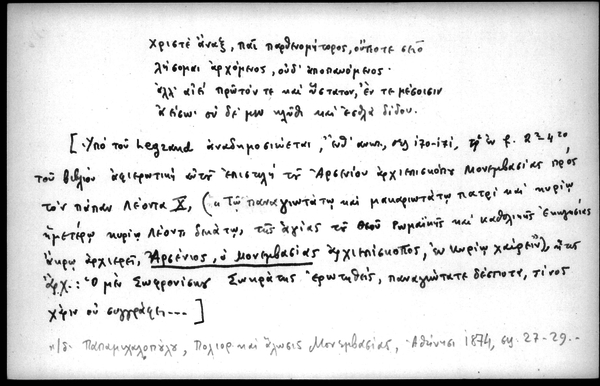 Χριστὲ ἄναξ, παῖ παρθενομήτορος, οὔποτε σεῖο
λήσομαι ἀρχόμενος, οὐδ' ἀποπαυόμενος·
ἀλλ' αἰεὶ πρῶτόν τε καὶ ὕστατον, ἔν τε μέσοισιν
ἀείσω· σὺ δέ μευ κλῦθι καὶ ἐσθλὰ δίδου.
[Ὑπὸ τοῦ Legrand ἀναδημοσιεύεται, ἔνθ' ἀνωτ., σς 170-171, ἡ ἐν φ. 2α-4
τοῦ βιβλίου ἀφιερωτικὴ αὕτη ἐπιστολὴ τοῦ Ἀρσενίου ἀρχιεπισκόπου Μονεμβασίας πρὸς
τὸν πάπαν Λέοντα X, («Τῷ παναγιωτάτῳ καὶ μακαριωτάτῳ πατρὶ καὶ κυρίῳ
ἡμετέρῳ κυρίῳ Λέοντι δεκάτῳ, τῆς ἁγίας τοῦ Θεοῦ Ρωμαϊκῆς καὶ καθολικῆς Ἐκκλησίας
ἄκρῳ ἀρχιερεῖ, Ἀρσένιος, ὁ Μονεμβασίας ἀρχιεπίσκοπος, ἐν κυρίῳ χαίρειν»), ἧς
ἀρχ.: Ὁ μὲν Σωφρονίσκου Σωκράτης ἐρωτηθείς, παναγιώτατε δέσποτα, τίνος
χάριν οὐ συγγράφει...]
Παπαμιχαλοπούλου, Πολιορ. καὶ ἅλωσις Μονεμβασίας, Ἀθήνησι 1874, σς. 27-29.